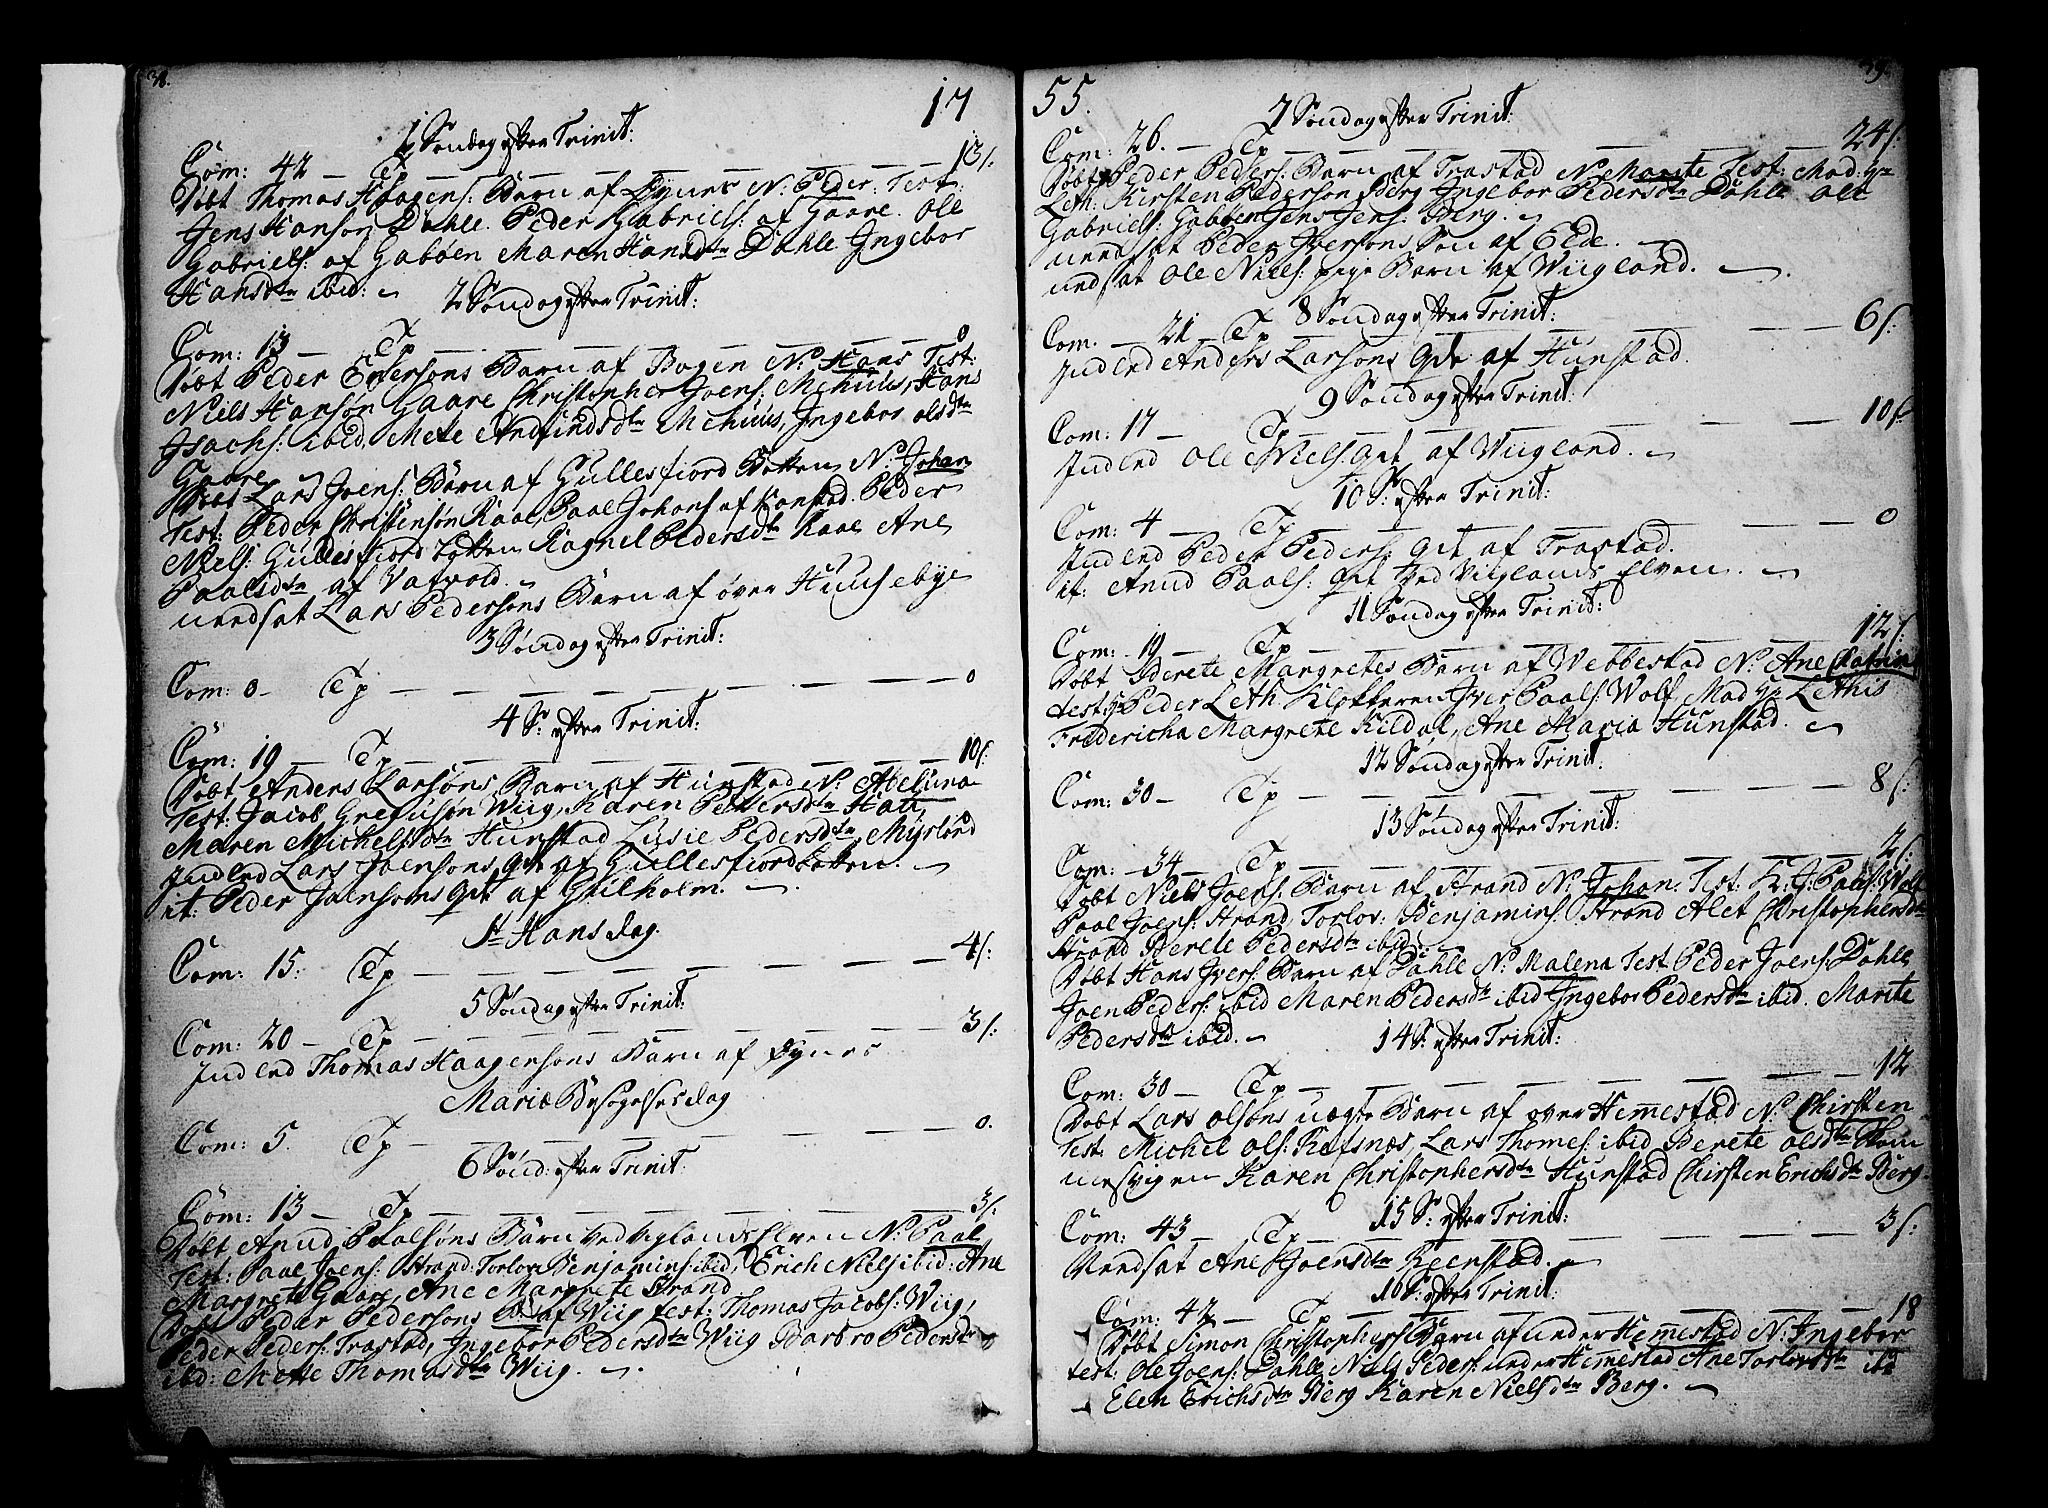 38.
17
1 Søndag efter Trinit:
Com: 42 — Tp — — — — — — — 13/:
Døbt Thomas Haagens: Barn af Fynes N: Peder: Test:
Jens Hanson Dahle. Peder Gabriels: af Gaare. Ole
Gabriels: af Gabøen Maren Hansdtr Dahle Ingebor
Hansdtr ibid:
2 Søndag efter Trinit:
Com: 13 — Tp — — — — — — — 0
Døbt Peder Ersons Barn af Bogen N: Hans Test:
Niels Hansøn Gaare Christopher Joens: Mehuus, Hans
Isachs: ibid, Mete Anfindsdtr Mehuus, Ingebor olsdtr
Gaare.
Døbt Lars Joens: Barn af Gullesfiord Botten N: Johan
Test: Peder Christensøn Kaae, Paal Johans af Konstad. Peder
Niels: Gullesfiord botten Ragnel Pedersdtr Kaae Ane
Paalsdtr af Vatvold.
Nedsat Lars Pedersons Barn af øver Huusebye
3 Søndag efter Trinit:
Com: 0 — Tp — — — — — — — 0
4 S: efter Trinit:
Com: 19 — Tp — — — — — — — 10/:
Døbt Anders Larsøns Barn af Hunstad N: Abeluna
Test: Jacob Grefusøn Wiig, Karen Pedersdtr
Maren Michelsdtr Hunstad Lusie Pedersdtr, Myrlønd
Indled Lars Joensons Qde af Gullesfiordbotten.
it: Peder Joensons Qde af Guilholm.
St Hans dag.
Com: 15. Tp — — — — — — — 4/:
5 Søndag efter Trinit:
Com: 20 — Tp — — — — — — — 3/:
Indled Thomas Haagensons Barn af Fynes
Mariæ Besøgelses dag
Com: 5. Tp — — — — — — — 0.
6 Sønd: efter Trinit:
Com: 13 — Tp — — — — — — — 3/:
Døbt Anud Paalsøns Barn ved Viglands Elven N: Paal
Test: Paal Joens: Strand: Torlov Benjamins: ibid, Erich Niels ibid: Ane
Margrete Gaare, Ane Margrete Strand
Døbt Peder Pedersons af Wiig test: Thomas Jacobs: Wiig,
Peder Peders: Trastad, Ingebor Pedersdtr Wiig Barbro Pedersdtr
ibid: Mette Thomasdtr Wiig.
39.
55.
7 Søndag efter Trinit:
Com: 26. — Tp — — — — — — — 24/:
Døbt Peder Peders: Barn af Trastad N: Marite Test: Mad:
Leth: Kirsten Pederson Berg Ingebor Pedersdtr Dahle Ole
Gabriels: Gabøen Jens Jens: Berg.
Nedsat Peder Iversons Søn af Elde.
nedsat Ole Niels: pige Barn af Wiigland.
8 Søndag efter Trinit:
Com. — 21 — Tp — — — — — — — 6/:
Indled Anders Larsons Qde af Hunstad.
9 Søndag efter Trinit:
Com: 17 — Tp — — — — — — — 10/:
Indled Ole Niels: Qde af Wiigland.
10 S: efter Trinit:
Com: 4 — Tp — — — — — — — 0
Indled Peder Peders: Qde af Trastad.
it: Anud Paals: Qde ved Viglands Elven.
11 Søndag efter Trinit:
Com: 19 — Tp — — — — — — — 12/:
Døbt Berete Margretes Barn af Webbestad N: Ane Catrina
test: Peder Leth. Klokkeren Iver Paals: Wolf, Mad: Lethis
Fredericha Margrete Kildal, Ane Maria Hunstad.
12 Søndag efter Trinit:
Com: 30 — Tp — — — — — — — 8/:
13 Søndag efter Trinit:
Com: — 34 — Tp — — — — — — — 2/:
Døbt Niels Joens: Barn af Strand N: Johan. Test: K: J: Paals: Wolf
Paal Joens: Strand, Torlov: Benjamins: Strand Alet Christophersdtr
Strand Berete Pedersdtr ibid:
Døbt Hans Ivers: Barn af Dahle N: Malena Test Peder Joens: Dahle,
Joen Peders: ibid Maren Pedersdtr ibid Ingebor Pedersdtr ibid. Marite
Pedersdtr ibid.
14 S: efter Trinit:
Com: 30 — Tp — — — — — — — 12
Døbt Lars olsøns uægte Barn af over Hemestad N: Chirsten
Test: Michel ols: Refsnæs, Lars Thomes: ibid Berete olsdtr Thom
mesvigen Karen Christophersdtr Hunstad Chirsten Erichsdtr Berg.
15 S: efter Trinit:
Com: 43 — Tp — — — — — — — 3/:
Nedsat Ane Joensdtr Reenstad.
16 S: efter Trinit:
Com: 42 — Tp — — — — — — — 18
Døbt Simon Christophers: Barn af under Hemestad N: Ingebor
test: Ole Joens: Dahle Niels Peders: under Hemestad Ane Torlovsdtr ibd
Elen Erichsdtr Berg Karen Nielsdtr Berg.